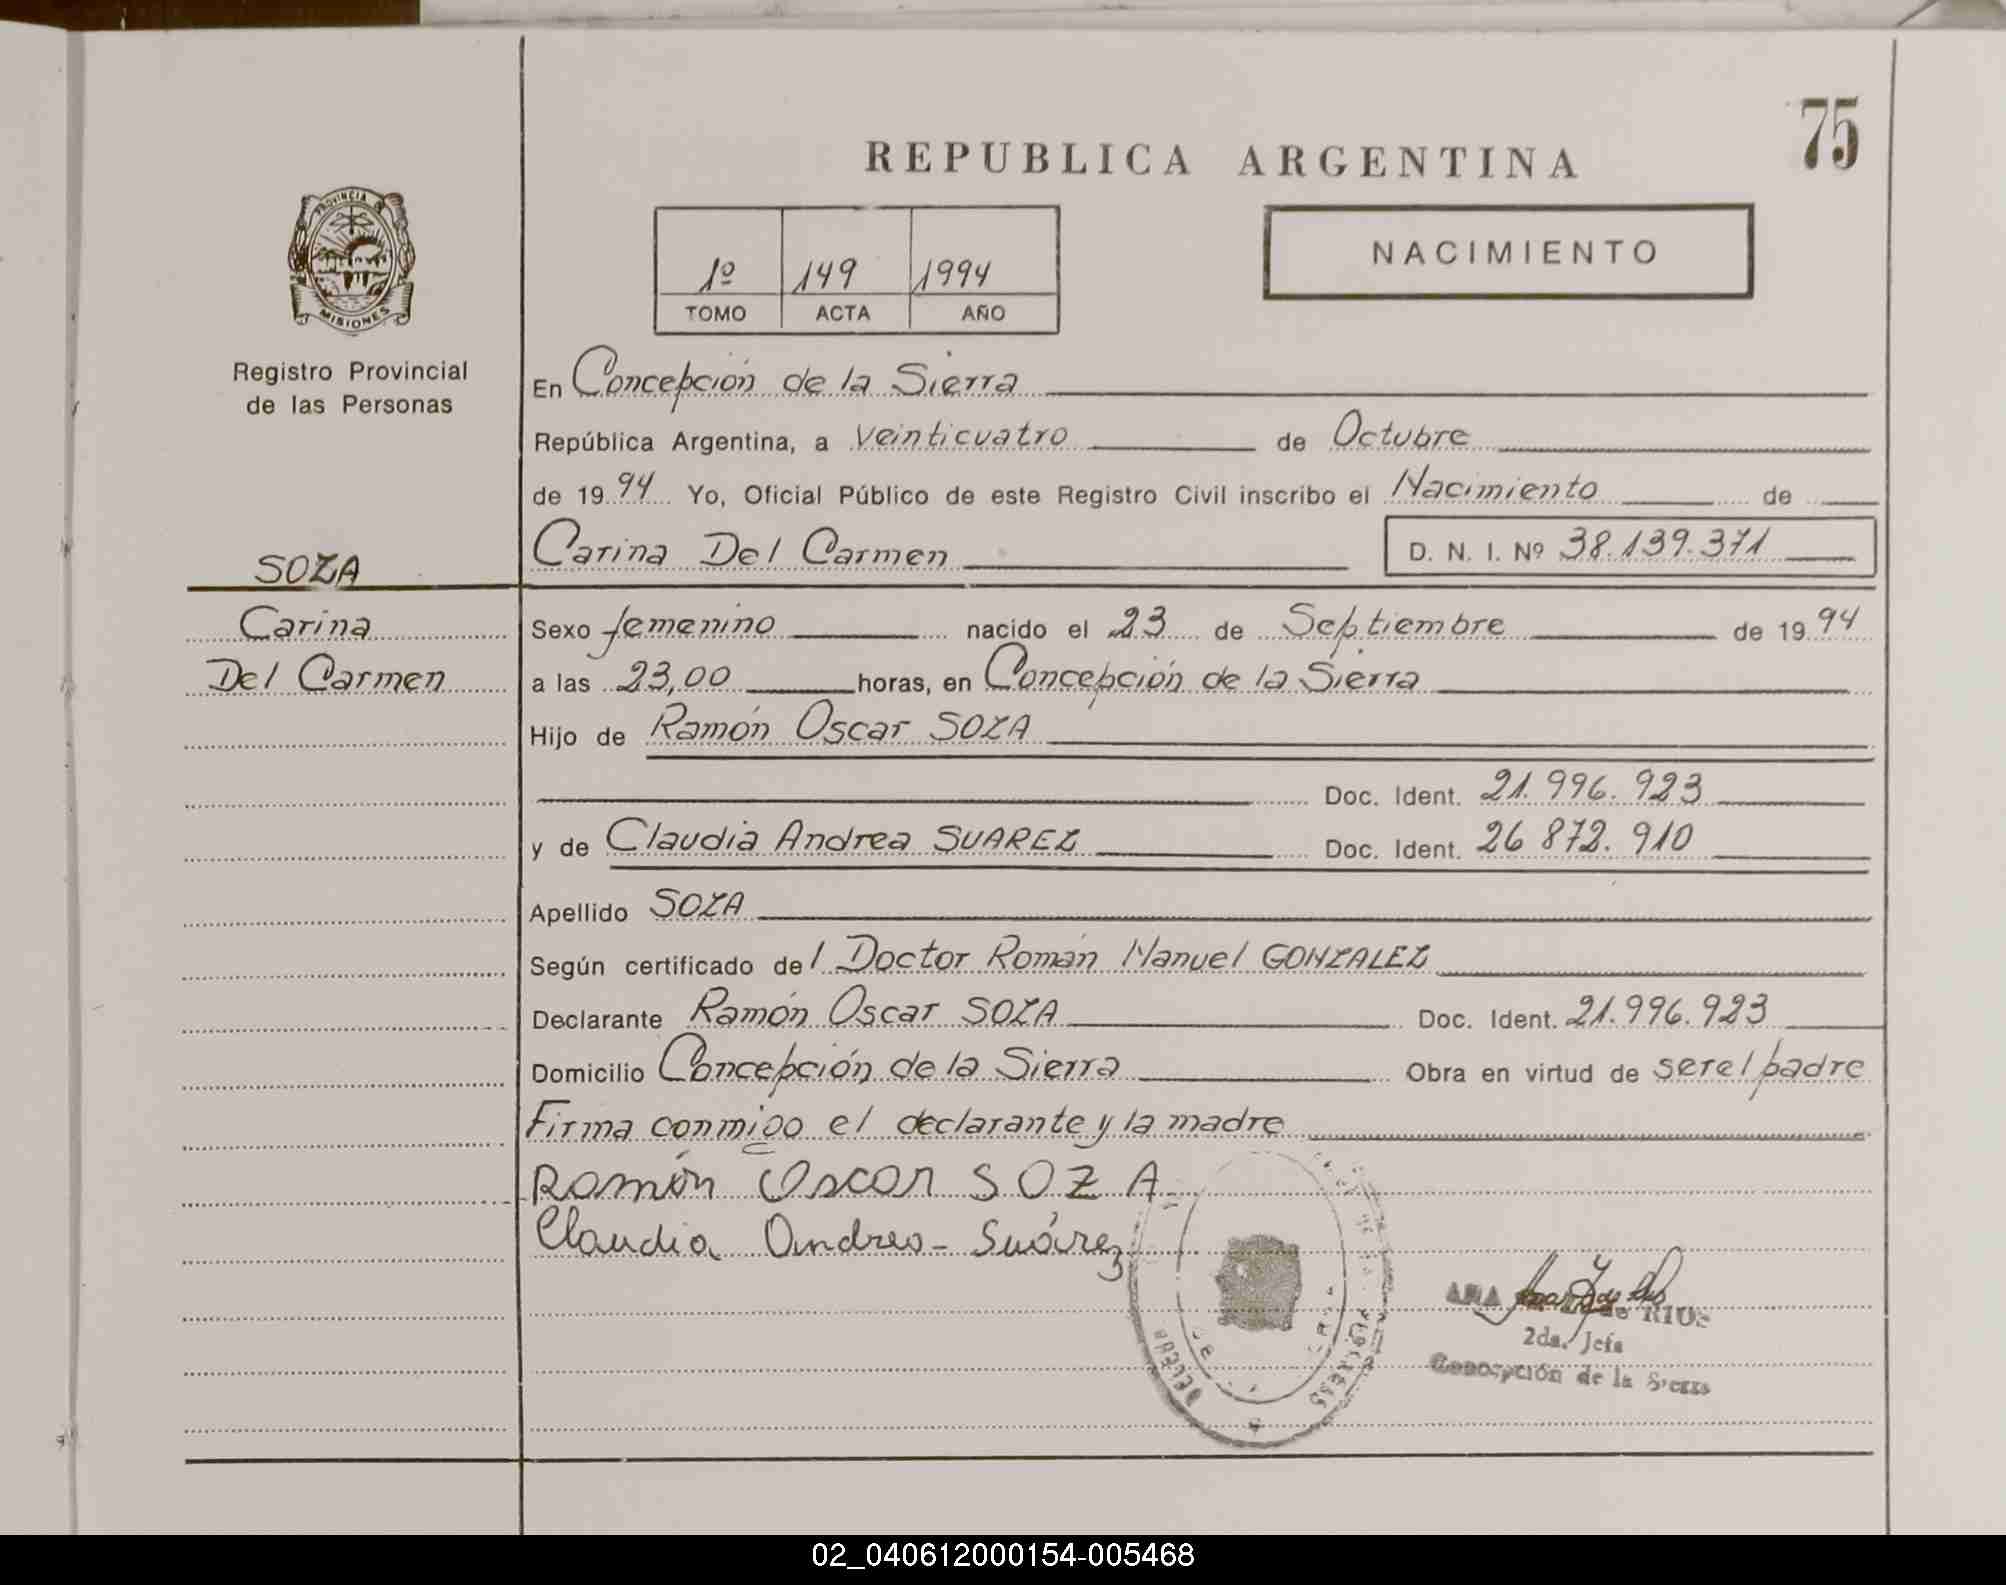 75
REPUBLICA ARGENTINA
NACIMIENTO
1º 149 1994
TOMO ACTA AÑO
PROVINCIA DE
MISIONES
Registro Provincial
de las Personas
SOZA
Carina
Del Carmen
En Concepción de la Sierra
República Argentina, a veinticuatro de Octubre
de 1994 Yo, Oficial Público de este Registro Civil inscribo el Nacimiento de
Carina Del Carmen D. N. I. Nº 38.139.371
Sexo femenino nacido el 23 de Septiembre de 1994
a las 23,00 horas, en Concepción de la Sierra
Hijo de Ramón Oscar SOZA
Doc. Ident. 21.996.923
y de Claudia Andrea SUAREZ Doc. Ident. 26 872.910
Apellido SOZA
Según certificado del Doctor Román Manuel GONZALEZ
Declarante Ramón Oscar SOZA Doc. Ident. 21.996.923
Domicilio Concepción de la Sierra Obra en virtud de ser el padre
Firma conmigo el declarante y la madre
Ramón Oscar SOZA
Claudia Andrea - Suárez
ANA de RIOS
2da. Jefa
Concepción de la Sierra
02_040612000154-005468